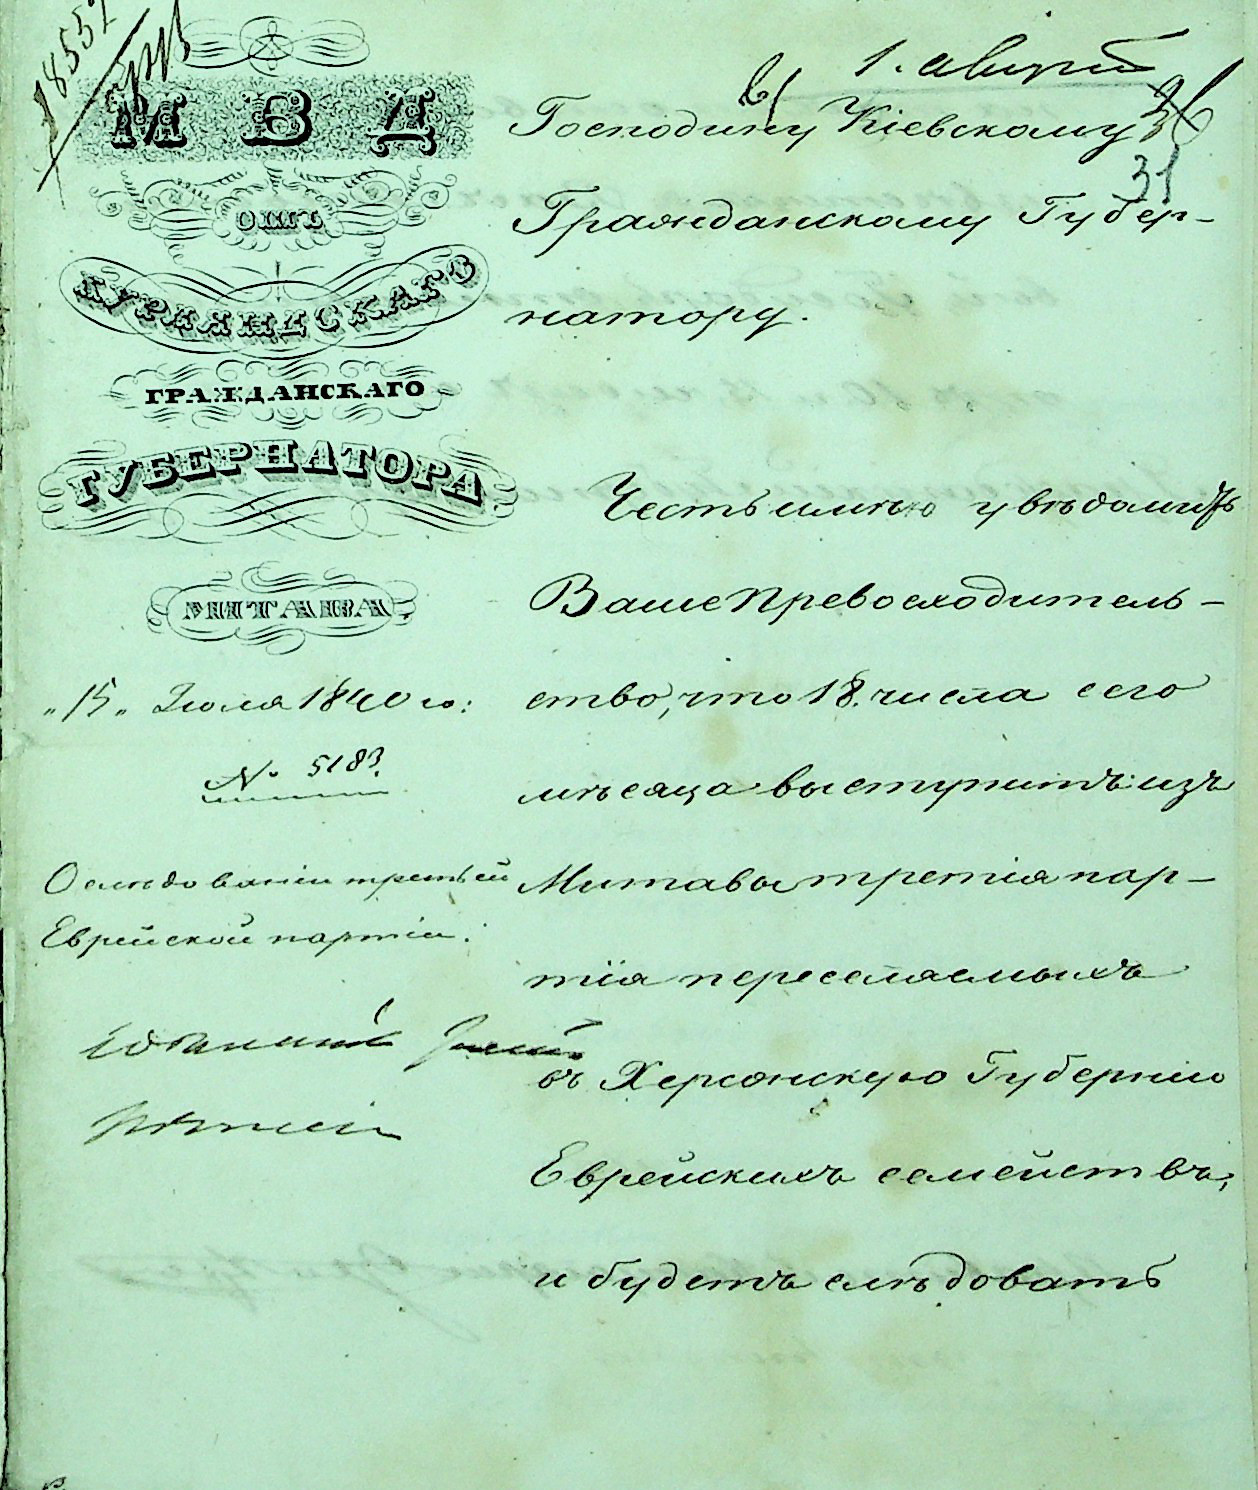 18552
1. август
М В Д
отъ
КУРЛЯНДСКАГО
ГРАЖДАНСКАГО
ГУБЕРНАТОРА
МИТАВА.
„15„ Июля 1840 го:
№ 5183.
О слѣдованіи третьей
Еврейской партіи.
36
31
Господину Кіевскому
Гражданскому Губер-
натору.
Честь имѣю увѣдомить
Ваше Превосходитель-
ство, что 18. числа сего
мѣсяца выступитъ изъ
Митавы третія пар-
тія переселяемыхъ
въ Херсонскую Губернію
Еврейскихъ семействъ,
и будетъ слѣдовать